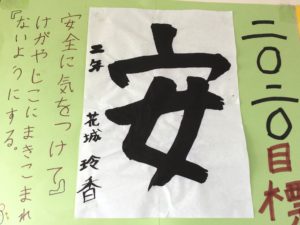 二〇二〇目標
安
二年 花城 玲香
安全に気をつけて』
けがやじこにまきこまれ
『ないようにする。